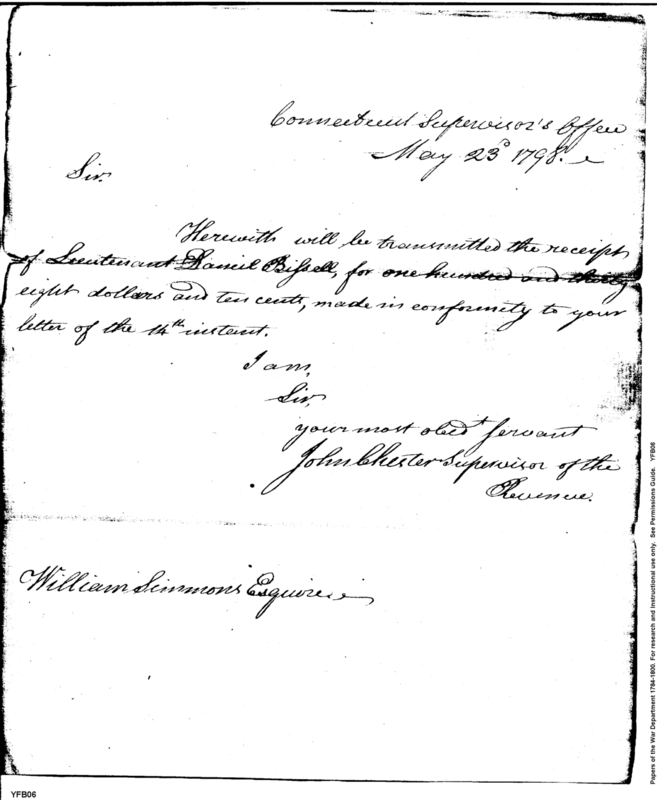 Connecticut Supervisor's Office
May 23d 1798.
Sir.
Herewith will be transmitted the receipt
of Lieutenant Daniel Bissell, for one hundred and thirty
eight dollars and ten cents, made in conformity to your
letter of the 14th instant.
I am,
Sir,
your most obedt servant
John Chester Supervisor of the
Revenue.
William Simmons Esquire
YFB06
Papers of the War Department 1784-1800. For research and instructional use only. See Permissions Guide. YFB06